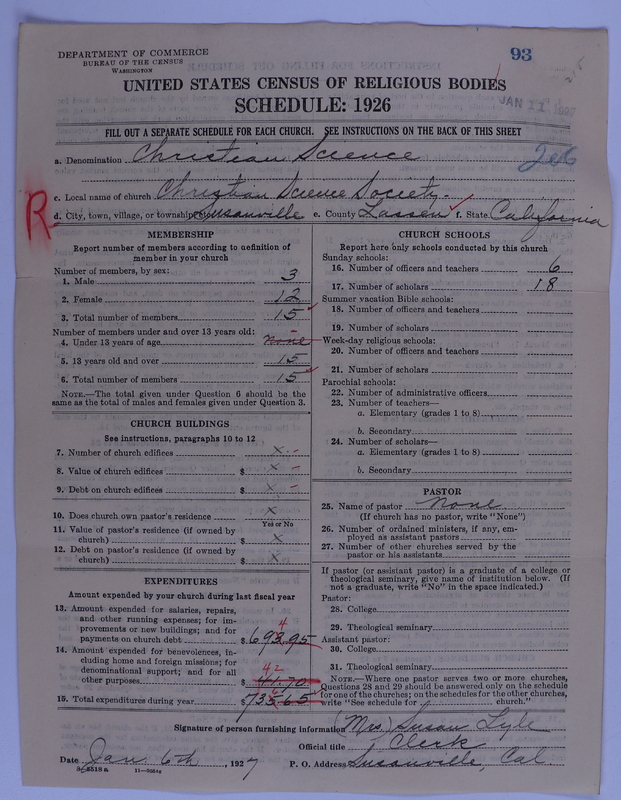 DEPARTMENT OF COMMERCE
BUREAU OF THE CENSUS
WASHINGTON
93
UNITED STATES CENSUS OF RELIGIOUS BODIES
SCHEDULE: 1926
JAN 11 1927
FILL OUT A SEPARATE SCHEDULE FOR EACH CHURCH. SEE INSTRUCTIONS ON THE BACK OF THIS SHEET
a. Denomination Christian Science
c. Local name of church Christian Science Society.
R
d. City, town, village, or township Susanville e. County Lassen f. State California
MEMBERSHIP
Report number of members according to definition of
member in your church
Number of members, by sex:
1. Male 3
2. Female 12
3. Total number of members 15
Number of members under and over 13 years old:
4. Under 13 years of age none
5. 13 years old and over 15
6. Total number of members 15
NOTE.—The total given under Question 6 should be the
same as the total of males and females given under Question 3.
CHURCH BUILDINGS
See instructions, paragraphs 10 to 12
7. Number of church edifices x -
8. Value of church edifices $ x -
9. Debt on church edifices $ x -
10. Does church own pastor's residence x
Yes or No
11. Value of pastor's residence (if owned by
church) $ x
12. Debt on pastor's residence (if owned by
church) $ x
EXPENDITURES
Amount expended by your church during last fiscal year
13. Amount expended for salaries, repairs,
and other running expenses; for im-
provements or new buildings; and for
payments on church debt $ 693.95
4
14. Amount expended for benevolences, in-
cluding home and foreign missions; for
denominational support; and for all
other purposes $ 41.70
42
15. Total expenditures during year $ 735.65
CHURCH SCHOOLS
Report here only schools conducted by this church
Sunday schools:
16. Number of officers and teachers 6
17. Number of scholars 18
Summer vacation Bible schools:
18. Number of officers and teachers
19. Number of scholars
Week-day religious schools:
20. Number of officers and teachers
21. Number of scholars
Parochial schools:
22. Number of administrative officers
23. Number of teachers—
a. Elementary (grades 1 to 8)
b. Secondary
24. Number of scholars—
a. Elementary (grades 1 to 8)
b. Secondary
PASTOR
25. Name of pastor None
(If church has no pastor, write "None")
26. Number of ordained ministers, if any, em-
ployed as assistant pastors
27. Number of other churches served by the
pastor or his assistants
If pastor (or assistant pastor) is a graduate of a college or
theological seminary, give name of institution below. (If
not a graduate, write "No" in the space indicated.)
Pastor:
28. College
29. Theological seminary
Assistant pastor:
30. College
31. Theological seminary
NOTE.—Where one pastor serves two or more churches,
Questions 28 and 29 should be answered only on the schedule
for one of the churches; on the schedules for the other churches,
write "See schedule for church."
Signature of person furnishing information (Mrs.) Susan Lyle
Official title Clerk
Date Jan. 6th, 1927 P. O. Address Susanville, Cal.
11—9684a